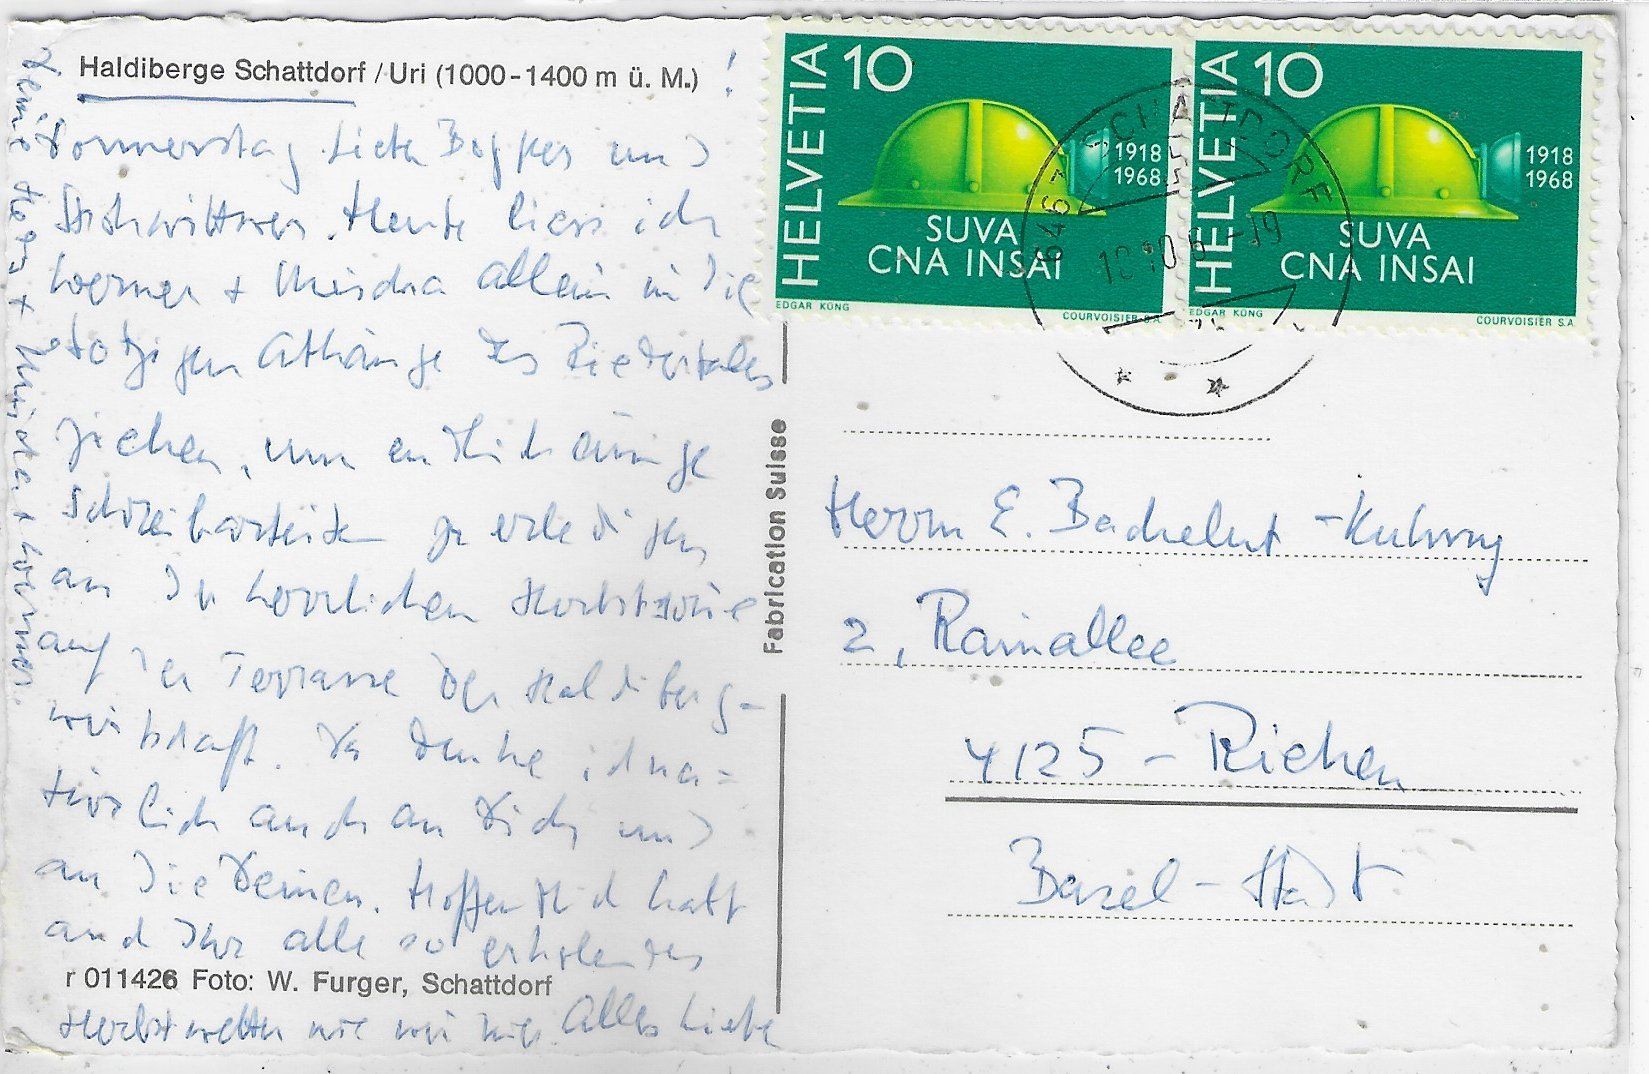 Haldiberge Schattdorf / Uri (1000-1400 m ü. M.) !
Donnerstag Lieber und
Strohwittwer. Heute liess ich
Werner + Mischa allein in die
stotzigen Abhänge des Riedertales
ziehen, um endlich einige
Schreibarbeiten zu erledigen
an der herrlichen Herbstsonne
auf der Terrasse der Haldiberg-
wirtschaft. Da denke ich na=
türlich auch an Dich und
an die Deinen. Hoffentlich habt
auch Ihr alle so erholendes
r 011426 Foto: W. Furger, Schattdorf
Herbstwetter wie wir hier. Alles Liebe
Deine + Mischa + Werner.
Fabrication Suisse
HELVETIA 10
1918
1968
SUVA
CNA INSAI
EDGAR KÜNG
COURVOISIER S.A.
HELVETIA 10
1918
1968
SUVA
CNA INSAI
EDGAR KÜNG
COURVOISIER S.A.
6467 SCHATTDORF
Herrn E. Bachelut-
2, Rainallee
4125 - Riehen
Basel-Stadt